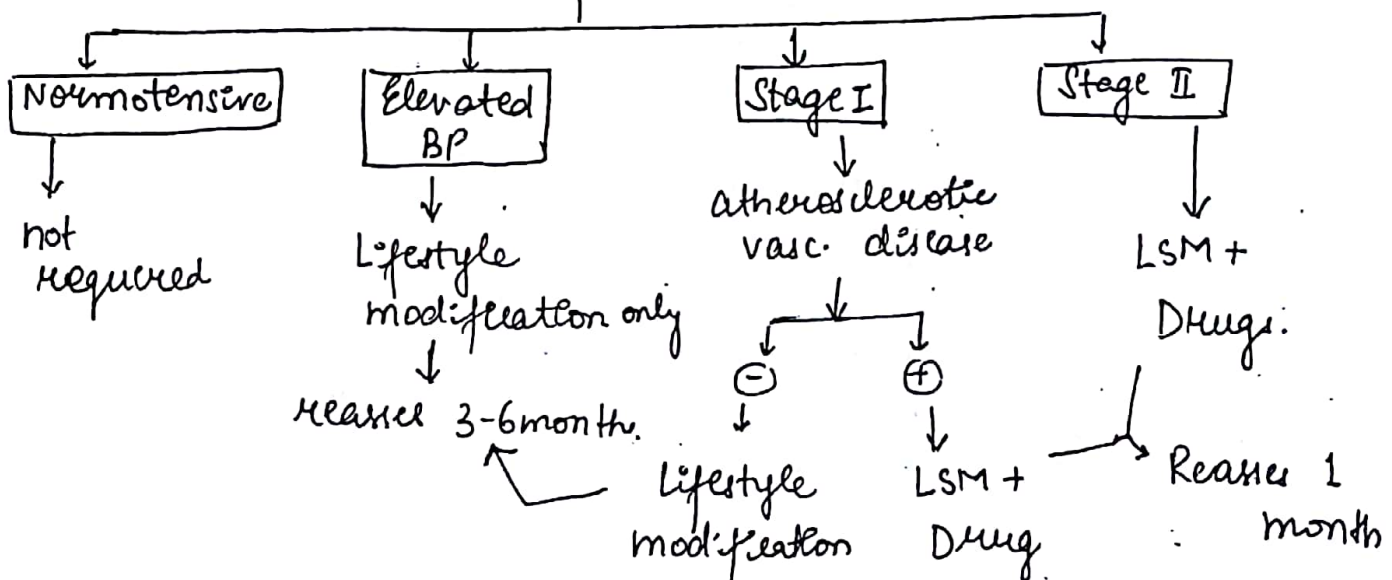 Normotensive
not
required
Elevated
BP
Lifestyle
modification only
reasses 3-6 month.
Stage I
atherosclerotic
vasc. disease
⊖
Lifestyle
modification
⊕
LSM +
Drug
Stage II
LSM +
Drugs.
Reasses 1
month